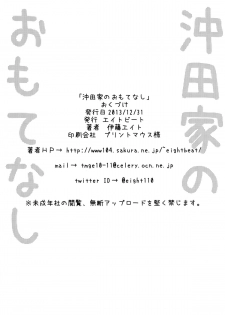 沖田家の
おもてなし
「沖田家のおもてなし」
おくづけ
発行日 2013/12/31
発行 エイトビート
著者 伊藤エイト
印刷会社 プリントマウス様
著者HP→ http://www104.sakura.ne.jp/~eightbeat/
mail→ tmge10-11@celery.ocn.ne.jp
twitter ID→ @eight110
※未成年社の閲覧、無断アップロードを堅く禁じます。